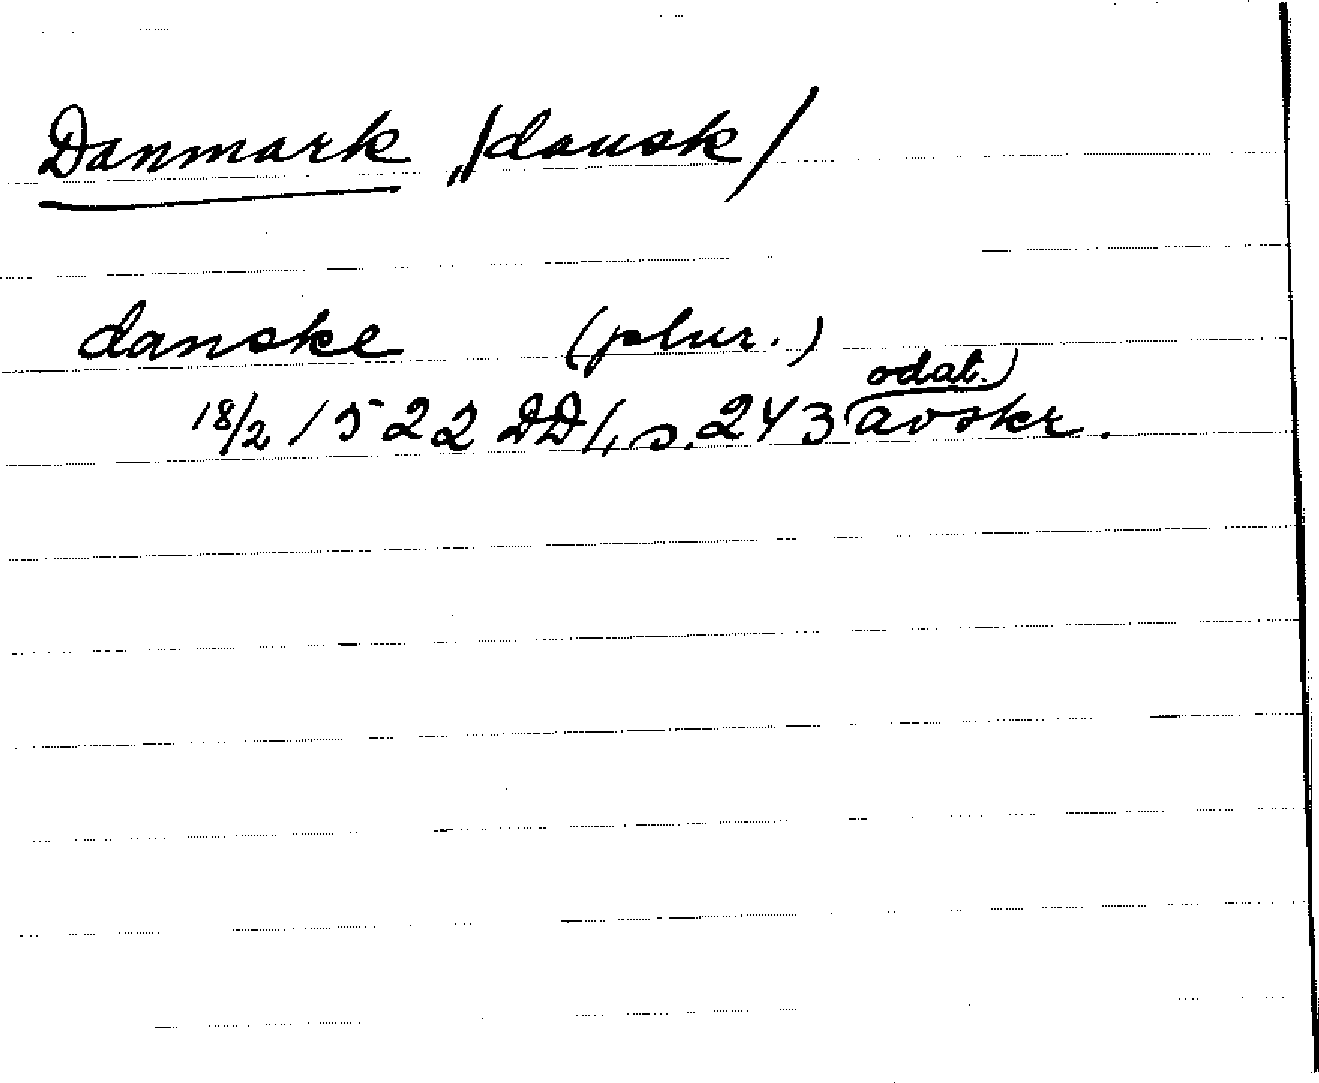 Danmark /dansk/
danske (plur.)
odat.
18/2 1522 DD 4, s. 243 avskr.